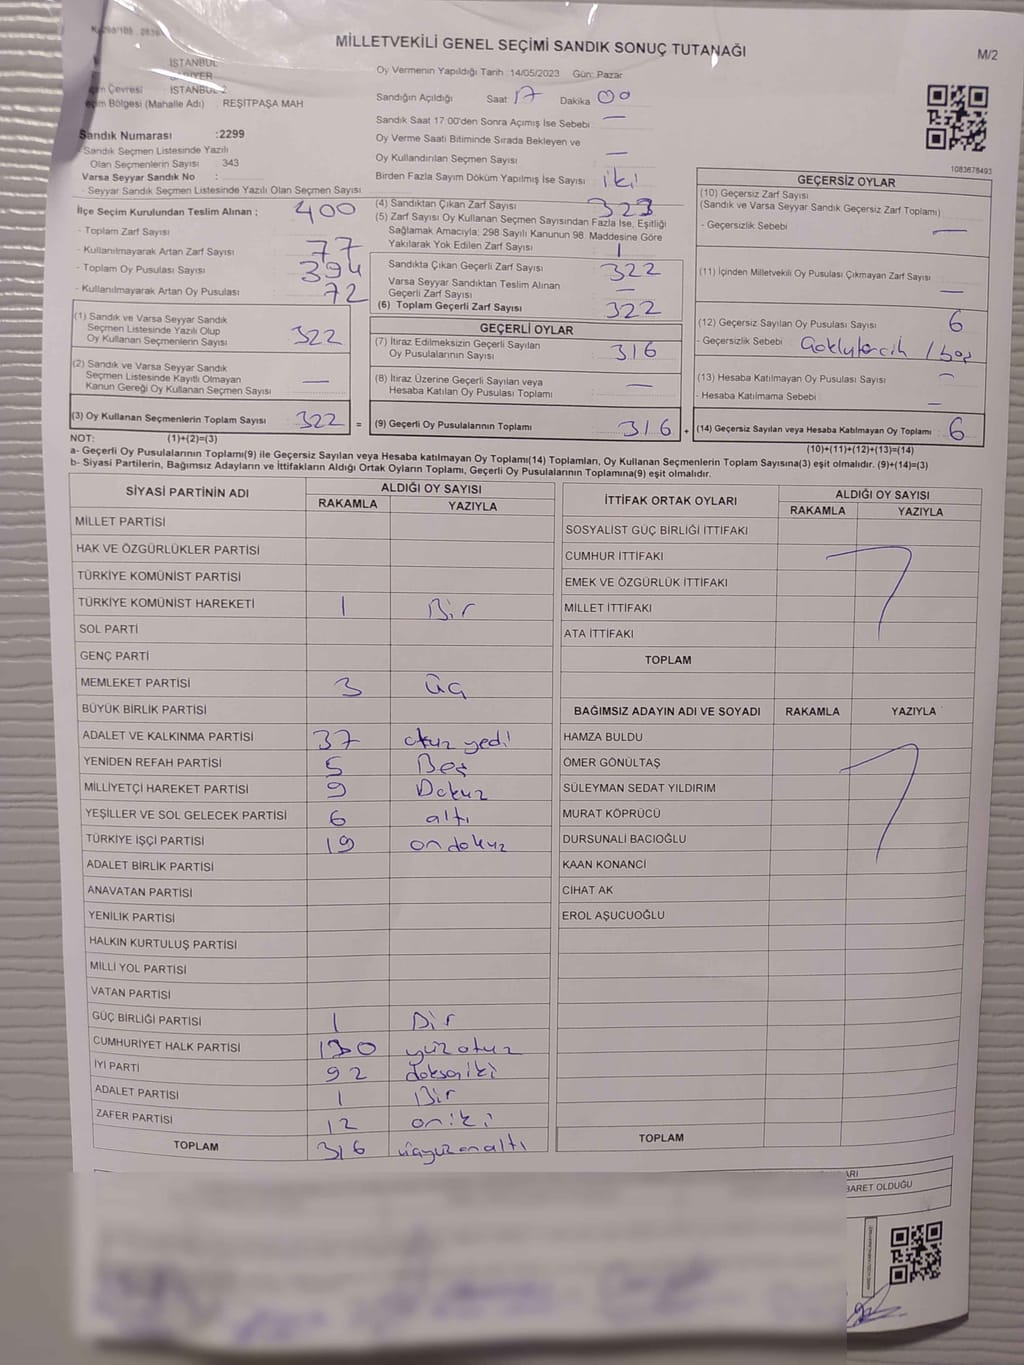 MİLLETVEKİLİ GENEL SEÇİMİ SANDIK SONUÇ TUTANAĞI
M/2
İSTANBUL
İSTANBUL 2
Bölgesi (Mahalle Adı) : REŞİTPAŞA MAH
Sandık Numarası :2299
Sandık Seçmen Listesinde Yazılı
Olan Seçmenlerin Sayısı : 343
Varsa Seyyar Sandık No :
- Seyyar Sandık Seçmen Listesinde Yazılı Olan Seçmen Sayısı
Oy Vermenin Yapıldığı Tarih :14/05/2023 Gün: Pazar
Sandığın Açıldığı Saat 17 Dakika 00
Sandık Saat 17:00'den Sonra Açımış İse Sebebi : —
Oy Verme Saati Bitiminde Sırada Bekleyen ve
Oy Kullandırılan Seçmen Sayısı : —
Birden Fazla Sayım Döküm Yapılmış İse Sayısı : iki
1083678493
İlçe Seçim Kurulundan Teslim Alınan ;
- Toplam Zarf Sayısı : 400
- Kullanılmayarak Artan Zarf Sayısı : 77
- Toplam Oy Pusulası Sayısı : 394
- Kullanılmayarak Artan Oy Pusulası : 72
(1) Sandık ve Varsa Seyyar Sandık
Seçmen Listesinde Yazılı Olup
Oy Kullanan Seçmenlerin Sayısı 322
(2) Sandık ve Varsa Seyyar Sandık
Seçmen Listesinde Kayıtlı Olmayan
Kanun Gereği Oy Kullanan Seçmen Sayısı —
(3) Oy Kullanan Seçmenlerin Toplam Sayısı 322 =
(4) Sandıktan Çıkan Zarf Sayısı 323
(5) Zarf Sayısı Oy Kullanan Seçmen Sayısından Fazla İse, Eşitliği
Sağlamak Amacıyla; 298 Sayılı Kanunun 98. Maddesine Göre
Yakılarak Yok Edilen Zarf Sayısı 1
Sandıkta Çıkan Geçerli Zarf Sayısı 322
Varsa Seyyar Sandıktan Teslim Alınan
Geçerli Zarf Sayısı —
(6) Toplam Geçerli Zarf Sayısı 322
GEÇERLİ OYLAR
(7) İtiraz Edilmeksizin Geçerli Sayılan
Oy Pusulalarının Sayısı 316
(8) İtiraz Üzerine Geçerli Sayılan veya
Hesaba Katılan Oy Pusulası Toplamı —
(9) Geçerli Oy Pusulalarının Toplamı 316 +
GEÇERSİZ OYLAR
(10) Geçersiz Zarf Sayısı
(Sandık ve Varsa Seyyar Sandık Geçersiz Zarf Toplamı)
- Geçersizlik Sebebi : —
(11) İçinden Milletvekili Oy Pusulası Çıkmayan Zarf Sayısı —
(12) Geçersiz Sayılan Oy Pusulası Sayısı 6
- Geçersizlik Sebebi : / boş
(13) Hesaba Katılmayan Oy Pusulası Sayısı —
- Hesaba Katılmama Sebebi : —
(14) Geçersiz Sayılan veya Hesaba Katılmayan Oy Toplamı 6
NOT: (1)+(2)=(3) (10)+(11)+(12)+(13)=(14)
a- Geçerli Oy Pusulalarının Toplamı(9) ile Geçersiz Sayılan veya Hesaba katılmayan Oy Toplamı(14) Toplamları, Oy Kullanan Seçmenlerin Toplam Sayısına(3) eşit olmalıdır. (9)+(14)=(3)
b- Siyasi Partilerin, Bağımsız Adayların ve İttifakların Aldığı Ortak Oyların Toplamı, Geçerli Oy Pusulalarının Toplamına(9) eşit olmalıdır.
SİYASİ PARTİNİN ADI ALDIĞI OY SAYISI
RAKAMLA YAZIYLA
MİLLET PARTİSİ
HAK VE ÖZGÜRLÜKLER PARTİSİ
TÜRKİYE KOMÜNİST PARTİSİ
TÜRKİYE KOMÜNİST HAREKETİ 1 Bir
SOL PARTİ
GENÇ PARTİ
MEMLEKET PARTİSİ 3 üç
BÜYÜK BİRLİK PARTİSİ
ADALET VE KALKINMA PARTİSİ 37 otuz yedi
YENİDEN REFAH PARTİSİ 5 Beş
MİLLİYETÇİ HAREKET PARTİSİ 9 Dokuz
YEŞİLLER VE SOL GELECEK PARTİSİ 6 altı
TÜRKİYE İŞÇİ PARTİSİ 19 ondokuz
ADALET BİRLİK PARTİSİ
ANAVATAN PARTİSİ
YENİLİK PARTİSİ
HALKIN KURTULUŞ PARTİSİ
MİLLİ YOL PARTİSİ
VATAN PARTİSİ
GÜÇ BİRLİĞİ PARTİSİ 1 Bir
CUMHURİYET HALK PARTİSİ 130 yüzotuz
İYİ PARTİ 92 doksaniki
ADALET PARTİSİ 1 Bir
ZAFER PARTİSİ 12 oniki
TOPLAM 316 üçyüzonaltı
İTTİFAK ORTAK OYLARI ALDIĞI OY SAYISI
RAKAMLA YAZIYLA
SOSYALİST GÜÇ BİRLİĞİ İTTİFAKI
CUMHUR İTTİFAKI
EMEK VE ÖZGÜRLÜK İTTİFAKI
MİLLET İTTİFAKI
ATA İTTİFAKI
TOPLAM
BAĞIMSIZ ADAYIN ADI VE SOYADI RAKAMLA YAZIYLA
HAMZA BULDU
ÖMER GÖNÜLTAŞ
SÜLEYMAN SEDAT YILDIRIM
MURAT KÖPRÜCÜ
DURSUNALİ BACIOĞLU
KAAN KONANCİ
CİHAT AK
EROL AŞUCUOĞLU
TOPLAM
OLDUĞU